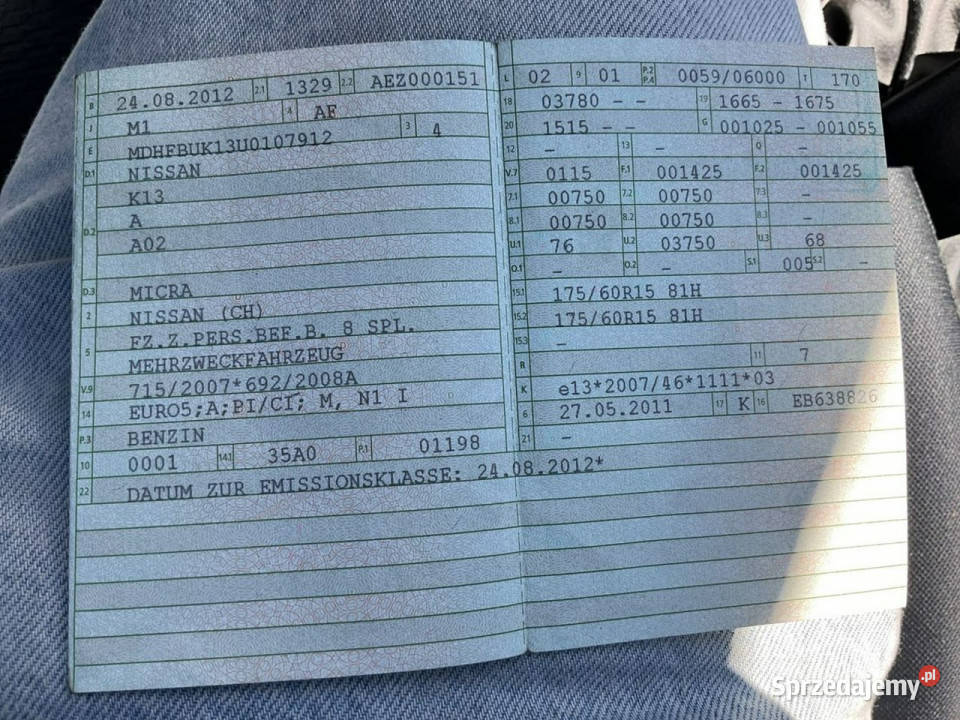 B 24.08.2012 2.1 1329 2.2 AEZ000151
J M1 4 AF
E MDHFBUK13U0107912 3 4
D.1 NISSAN
D.2 K13
A
A02
D.3 MICRA
2 NISSAN (CH)
5 FZ.Z.PERS.BEF.B. 8 SPL.
MEHRZWECKFAHRZEUG
V.9 715/2007*692/2008A
14 EURO5;A;PI/CI; M, N1 I
P.3 BENZIN
10 0001 14.1 35A0 P.1 01198
22 DATUM ZUR EMISSIONSKLASSE: 24.08.2012*
L 02 9 01 P.2 P.4 0059/06000 T 170
18 03780 - - 19 1665 - 1675
20 1515 - - G 001025 - 001055
12 - 13 - Q -
V.7 0115 F.1 001425 F.2 001425
7.1 00750 7.2 00750 7.3 -
8.1 00750 8.2 00750 8.3 -
U.1 76 U.2 03750 U.3 68
O.1 - O.2 - S.1 005 S.2 -
15.1 175/60R15 81H
15.2 175/60R15 81H
15.3 -
R 11 7
K e13*2007/46*1111*03
6 27.05.2011 17 K 16 EB638826
21 -
Sprzedajemy.pl